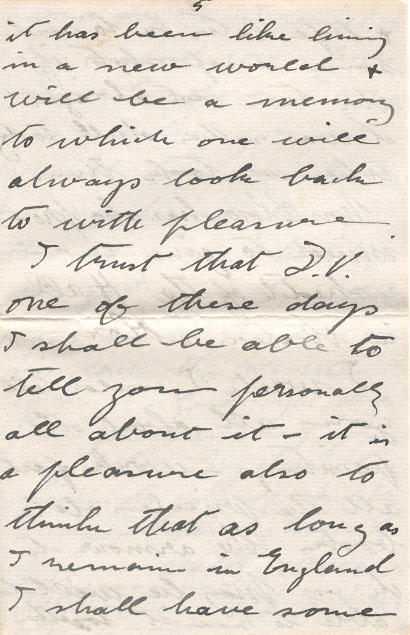 5
it has been like living
in a new world &
will be a memory
to which one will
always look back
to with pleasure.
I trust that D.V.
one of these days
I shall be able to
tell you personally
all about it - it is
a pleasure also to
think that as long as
I remain in England
I shall have some